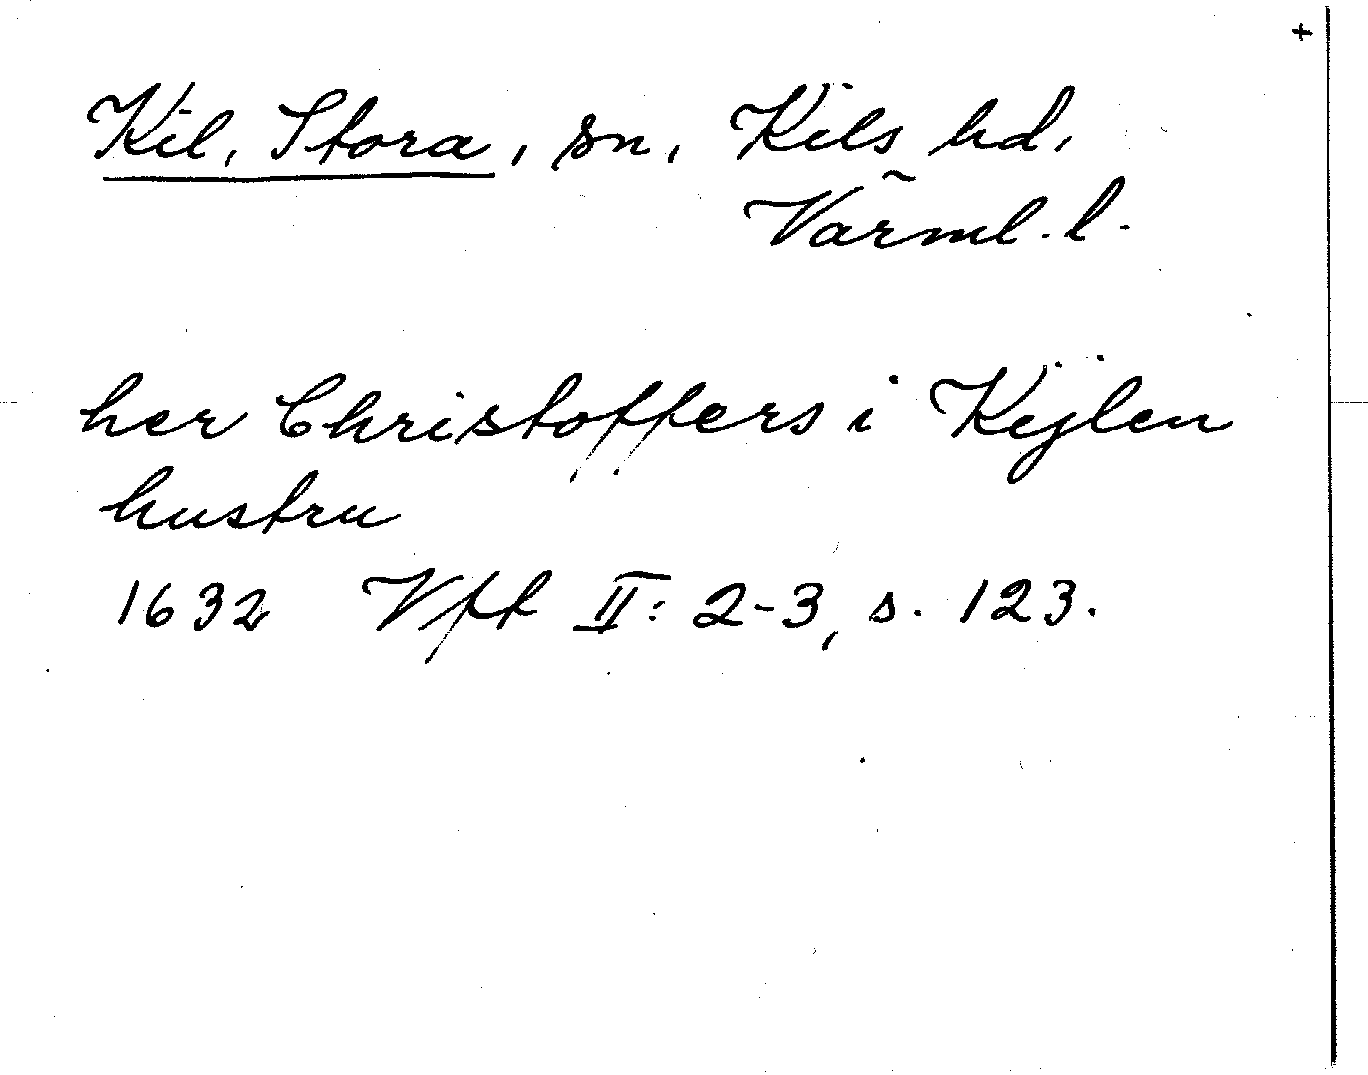 +
Kil, Stora, sn, Kils hd,
Värml. l.
her Christoffers i Kÿlen
hustru
1632 Vft II: 2-3, s. 123.